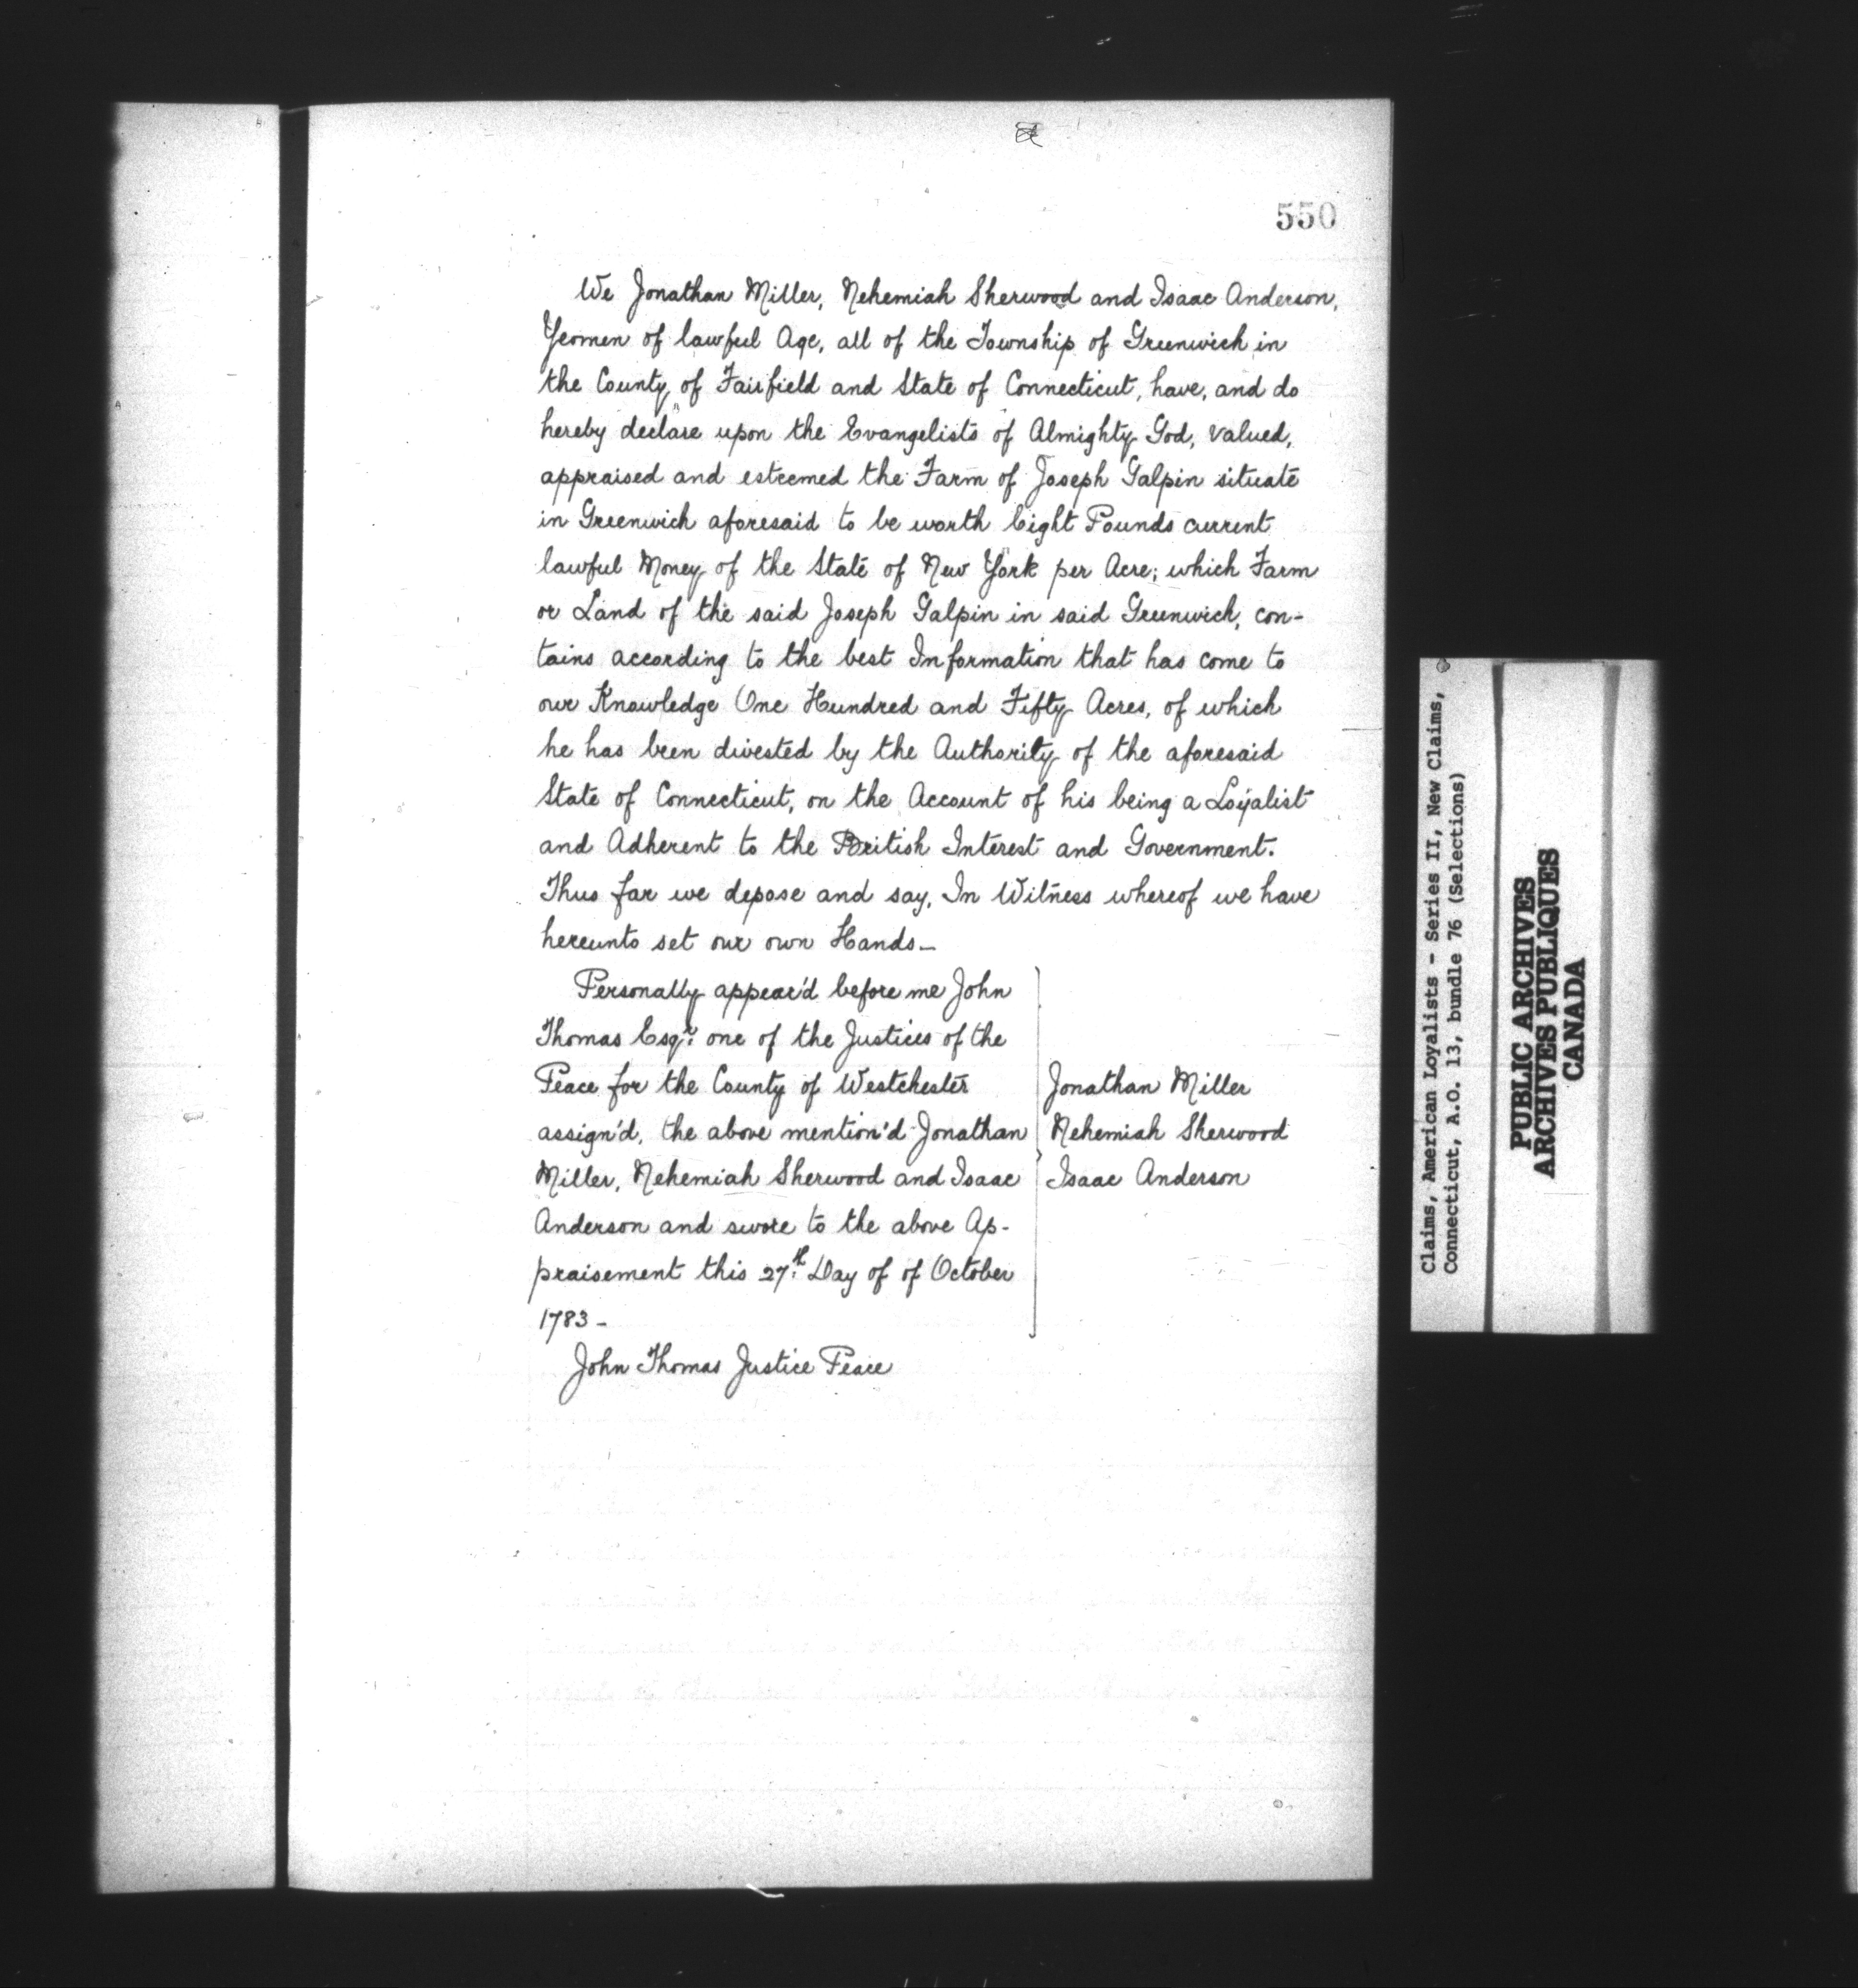 550
We Jonathan Miller, Nehemiah Sherwood and Isaac Anderson,
Yeomen of lawful Age, all of the Township of Greenwich in
the County of Fairfield and State of Connecticut, have, and do
hereby declare upon the Evangelists of Almighty God, valued,
appraised and esteemed the Farm of Joseph Galpin situate
in Greenwich aforesaid to be worth Eight Pounds current
lawful Money of the State of New York per Acre; which Farm
or Land of the said Joseph Galpin in said Greenwich, con-
tains according to the best Information that has come to
our Knowledge One Hundred and Fifty Acres, of which
he has been divested by the Authority of the aforesaid
State of Connecticut, on the Account of his being a Loyalist
and Adherent to the British Interest and Government.
Thus far we depose and say, In Witness whereof we have
hereunto set our own Hands—
Personally appear'd before me John
Thomas Esqr. one of the Justices of the
Peace for the County of Westchester
assign'd, the above mention'd Jonathan
Miller, Nehemiah Sherwood and Isaac
Anderson and swore to the above Ap-
praisement this 27th Day of of October
1783-
John Thomas Justice Peace
Jonathan Miller
Nehemiah Sherwood
Isaac Anderson
Claims, American Loyalists - Series II, New Claims,
Connecticut, A.O. 13, bundle 76 (Selections)
PUBLIC ARCHIVES
ARCHIVES PUBLIQUES
CANADA